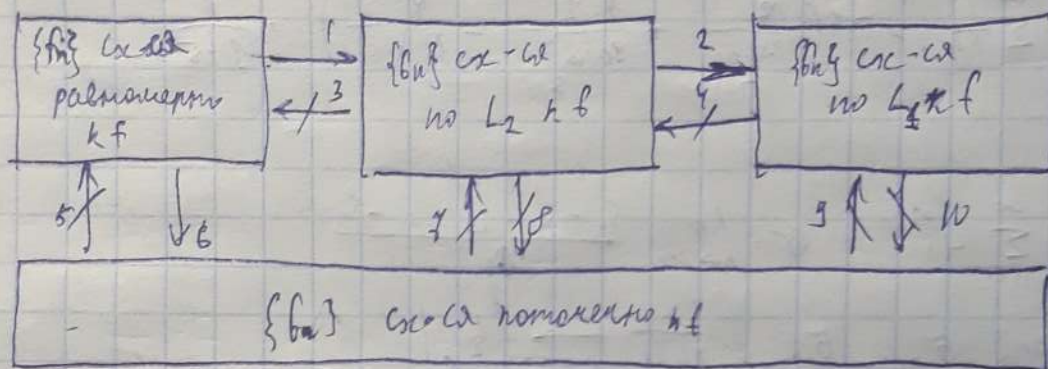 {fn} сх-ся
равномерно
к f
1
3
{fn} сх-ся
по L₂ к f
2
4
{fn} сх-ся
по L₁ к f
5
6
7
8
9
10
{fn} сх-ся поточечно к f